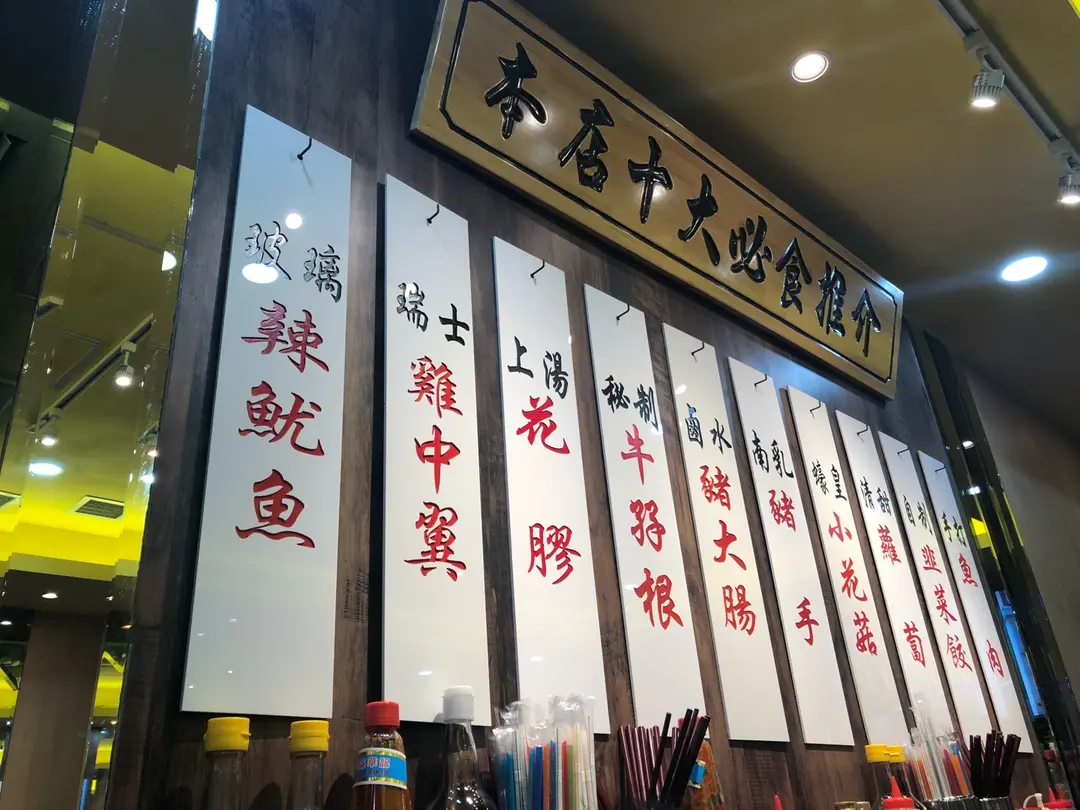 本店十大必食推介
玻璃辣魷魚
瑞士雞中翼
上湯花膠
秘制牛孖根
鹵水豬大腸
南乳豬手
蠔皇小花菇
清甜蘿蔔
自制韮菜餃
手打魚肉